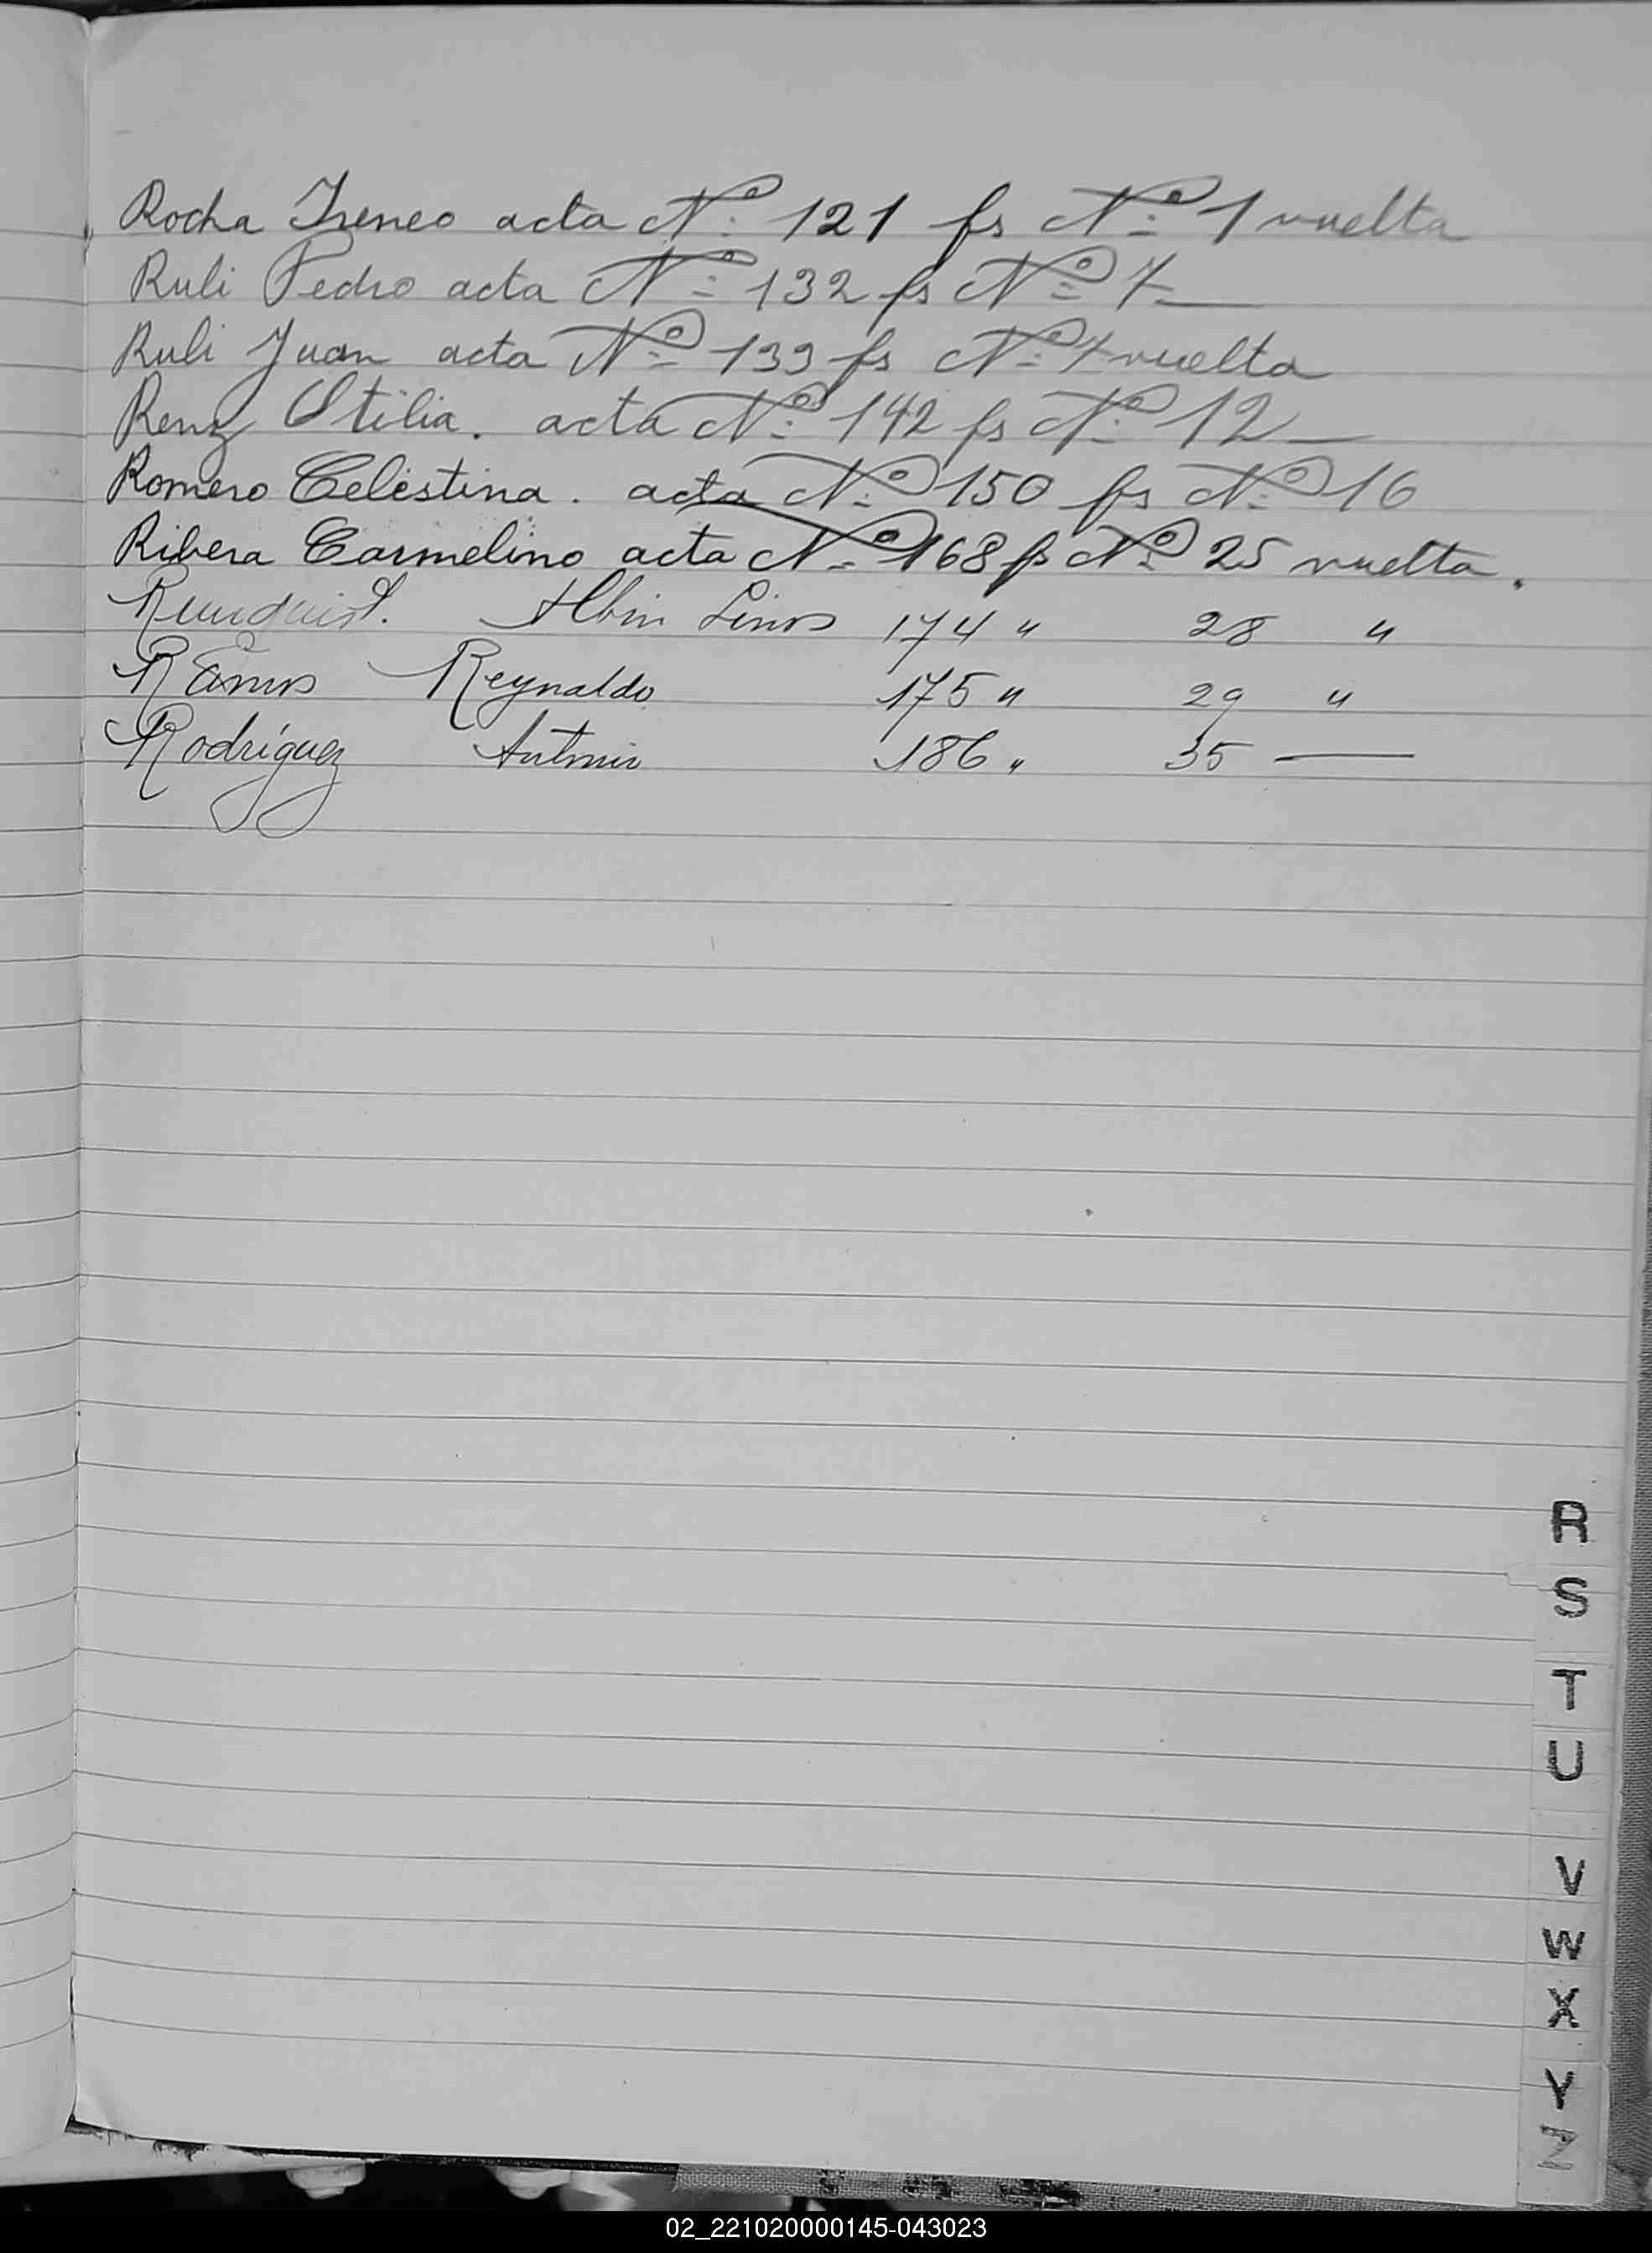 Rocha Ireneo acta Nº 121 fs Nº 1 vuelta
Ruli Pedro acta Nº 132 fs Nº 7 —
Ruli Juan acta Nº 133 fs Nº 7 vuelta
Renz Otilia. acta Nº 142 fs Nº 12 —
Romero Celestina. acta Nº 150 fs Nº 16
Ribera Carmelino acta Nº 168 fs Nº 25 vuelta.
Runquist. Albin Linos 174 " 28 "
Ramos Reynaldo 175 " 29 "
Rodríguez Antonio 186 " 35 —
R
S
T
U
V
W
X
Y
Z
02_221020000145-043023